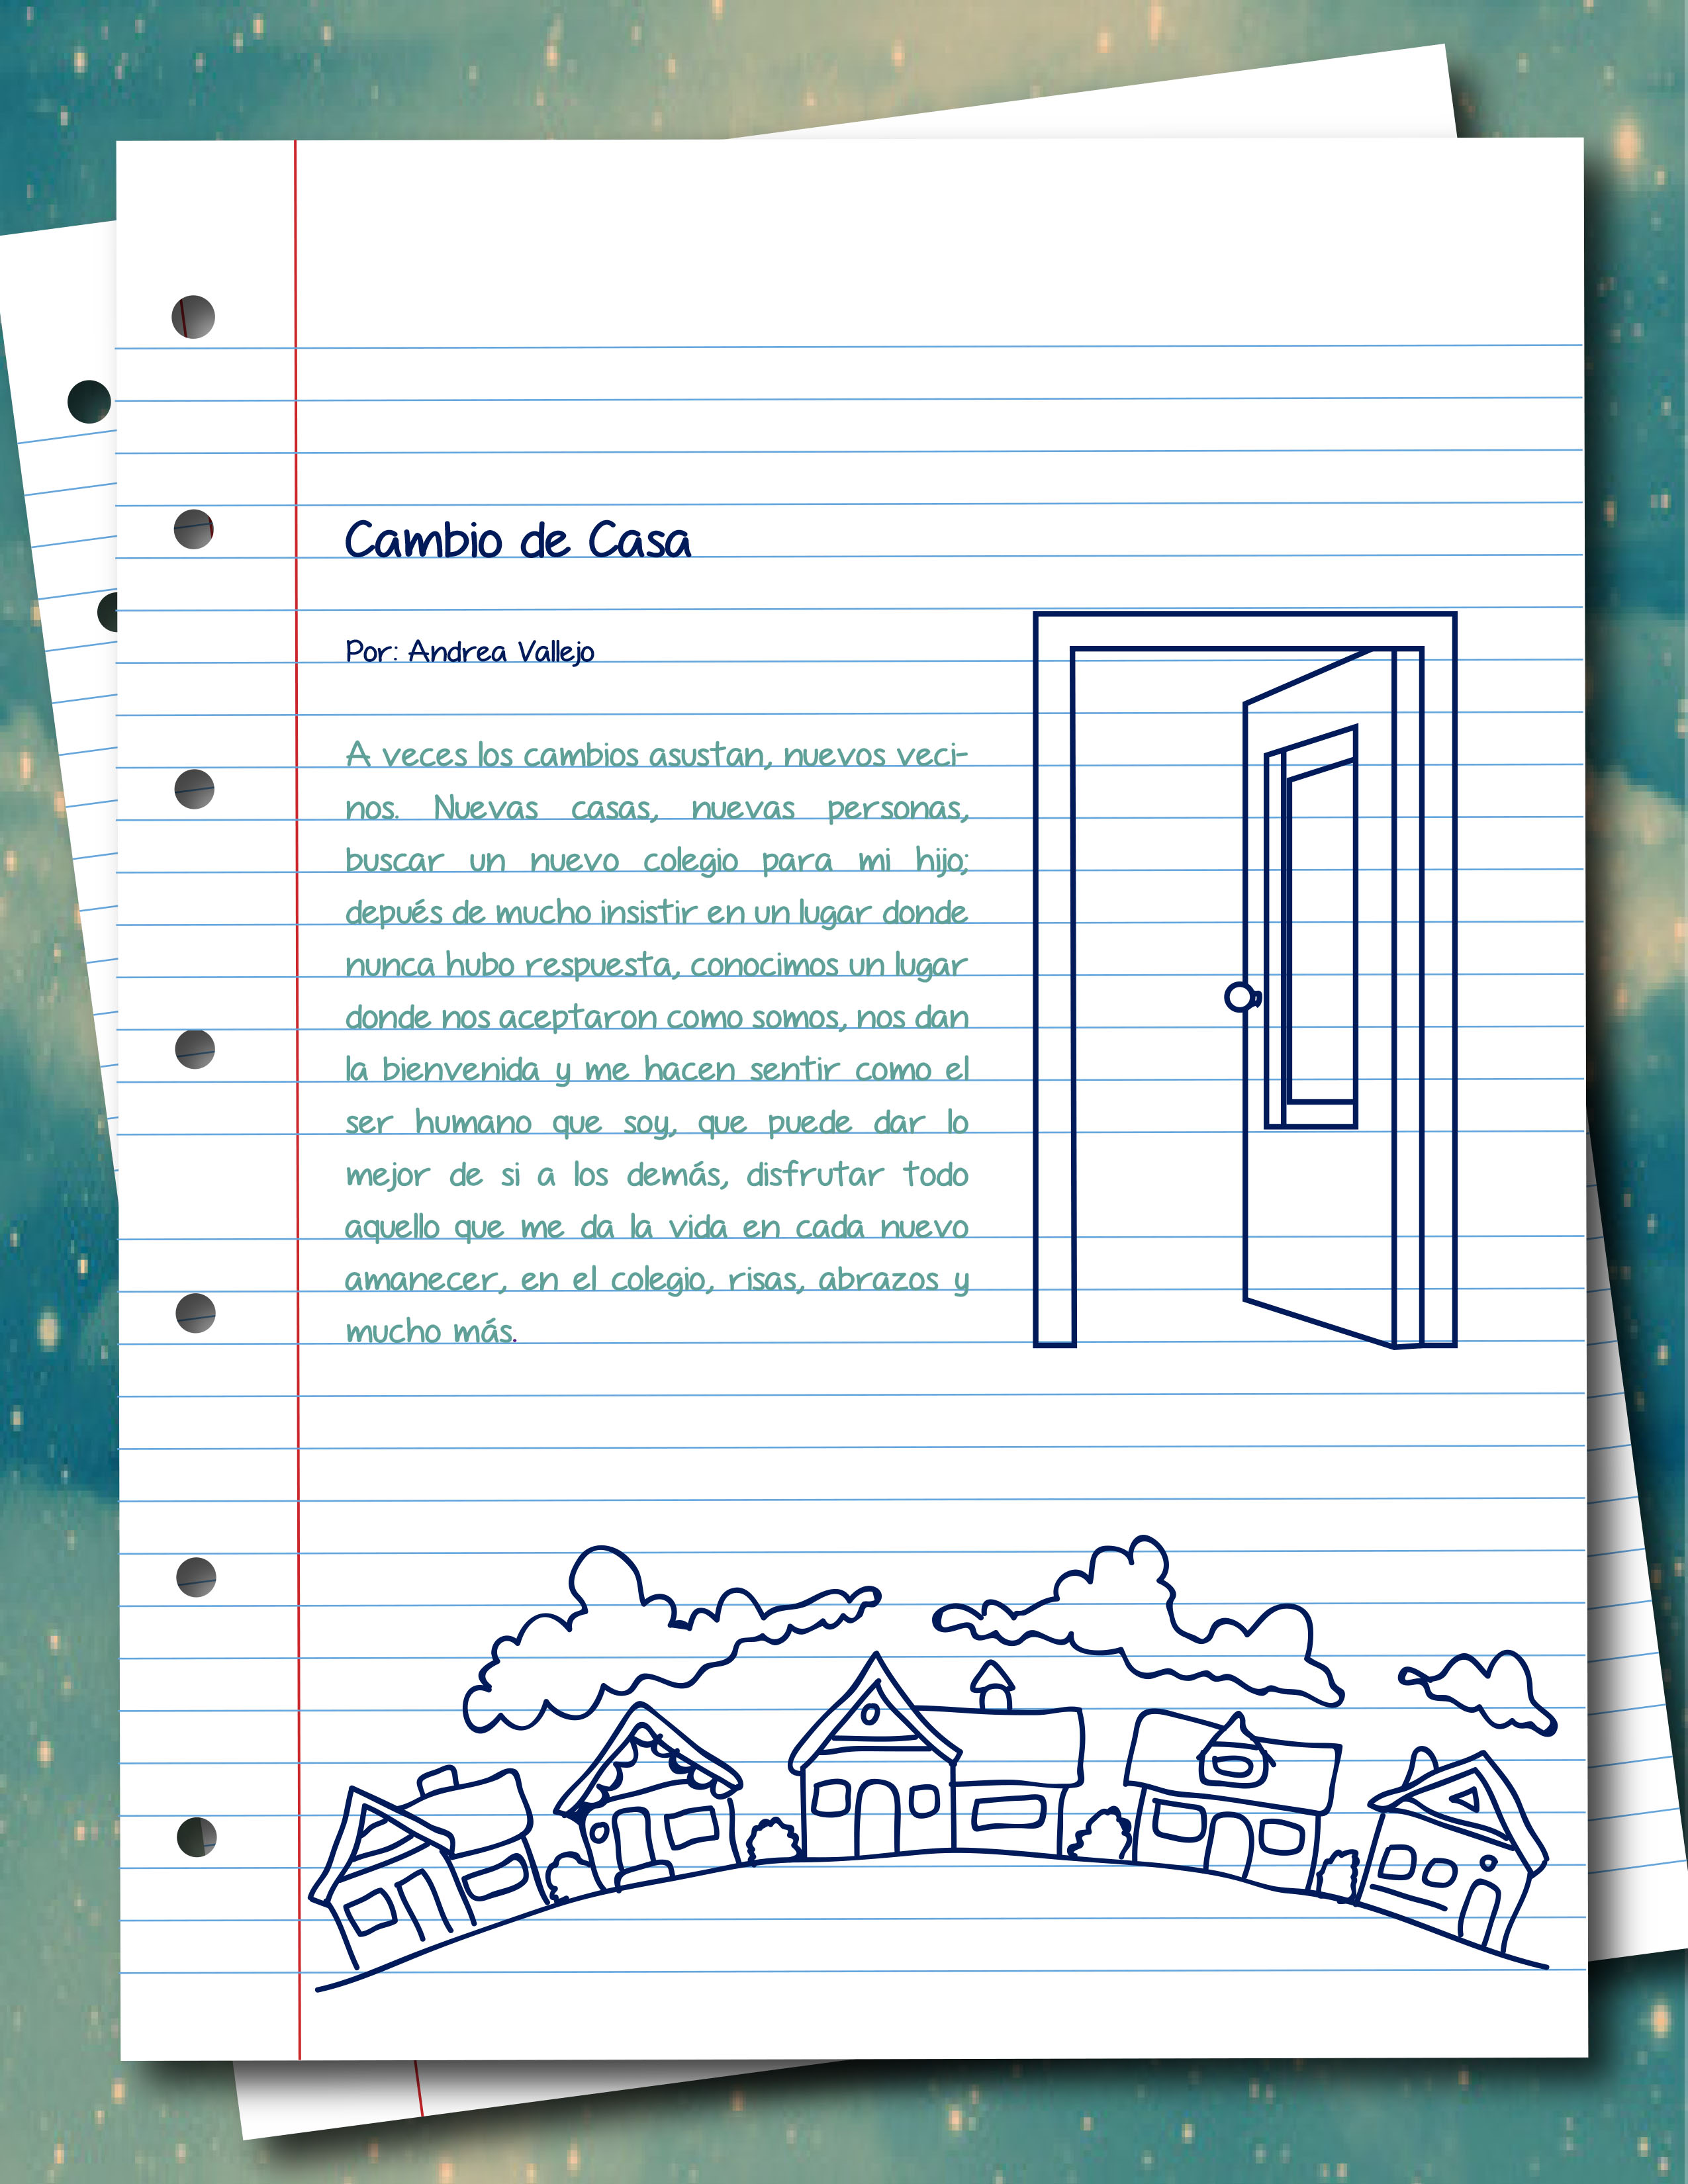 Cambio de Casa
Por: Andrea Vallejo
A veces los cambios asustan, nuevos veci-
nos. Nuevas casas, nuevas personas,
buscar un nuevo colegio para mi hijo;
depués de mucho insistir en un lugar donde
nunca hubo respuesta, conocimos un lugar
donde nos aceptaron como somos, nos dan
la bienvenida y me hacen sentir como el
ser humano que soy, que puede dar lo
mejor de si a los demás, disfrutar todo
aquello que me da la vida en cada nuevo
amanecer, en el colegio, risas, abrazos y
mucho más.